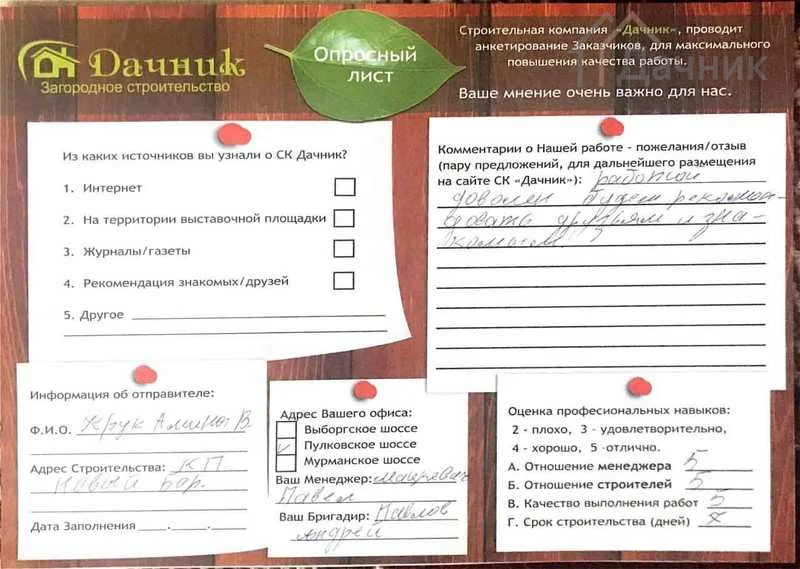 Дачник
Загородное строительство
Опросный
лист
Строительная компания «Дачник», проводит
анкетирование Заказчиков, для максимального
повышения качества работы.
Ваше мнение очень важно для нас.
Дачник
Из каких источников вы узнали о СК Дачник?
1. Интернет
2. На территории выставочной площадки
3. Журналы/газеты
4. Рекомендация знакомых/друзей
5. Другое
Комментарии о Нашей работе - пожелания/отзыв
(пару предложений, для дальнейшего размещения
на сайте СК «Дачник»): работой
доволен будем рекомен-
довать друзьям и зна-
комым
Информация об отправителе:
Ф.И.О. Крук В
Адрес Строительства: КП
Новый
Дата Заполнения __.__.__
Адрес Вашего офиса:
Выборгское шоссе
Пулковское шоссе
Мурманское шоссе
Ваш Менеджер:
Павел
Ваш Бригадир: Павлов
Андрей
Оценка профессиональных навыков:
2 - плохо, 3 - удовлетворительно,
4 - хорошо, 5 -отлично.
А. Отношение менеджера 5
Б. Отношение строителей 5
В. Качество выполнения работ 5
Г. Срок строительства (дней)